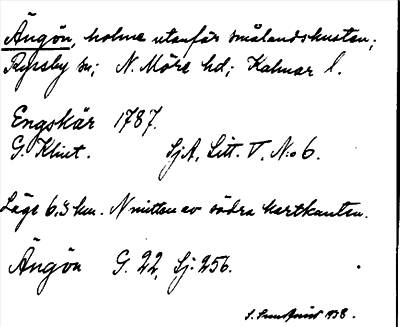 Ängön, holme utanför smålandskusten;
Ryssby sn; N. Möre hd; Kalmar l.
Engskär 1787.
G. Klint. SjA, Litt. V, No 6.
Läge 6,3 km. N mitten av södra kartkanten.
Ängön G. 22, Sj. 256.
S. 1938.